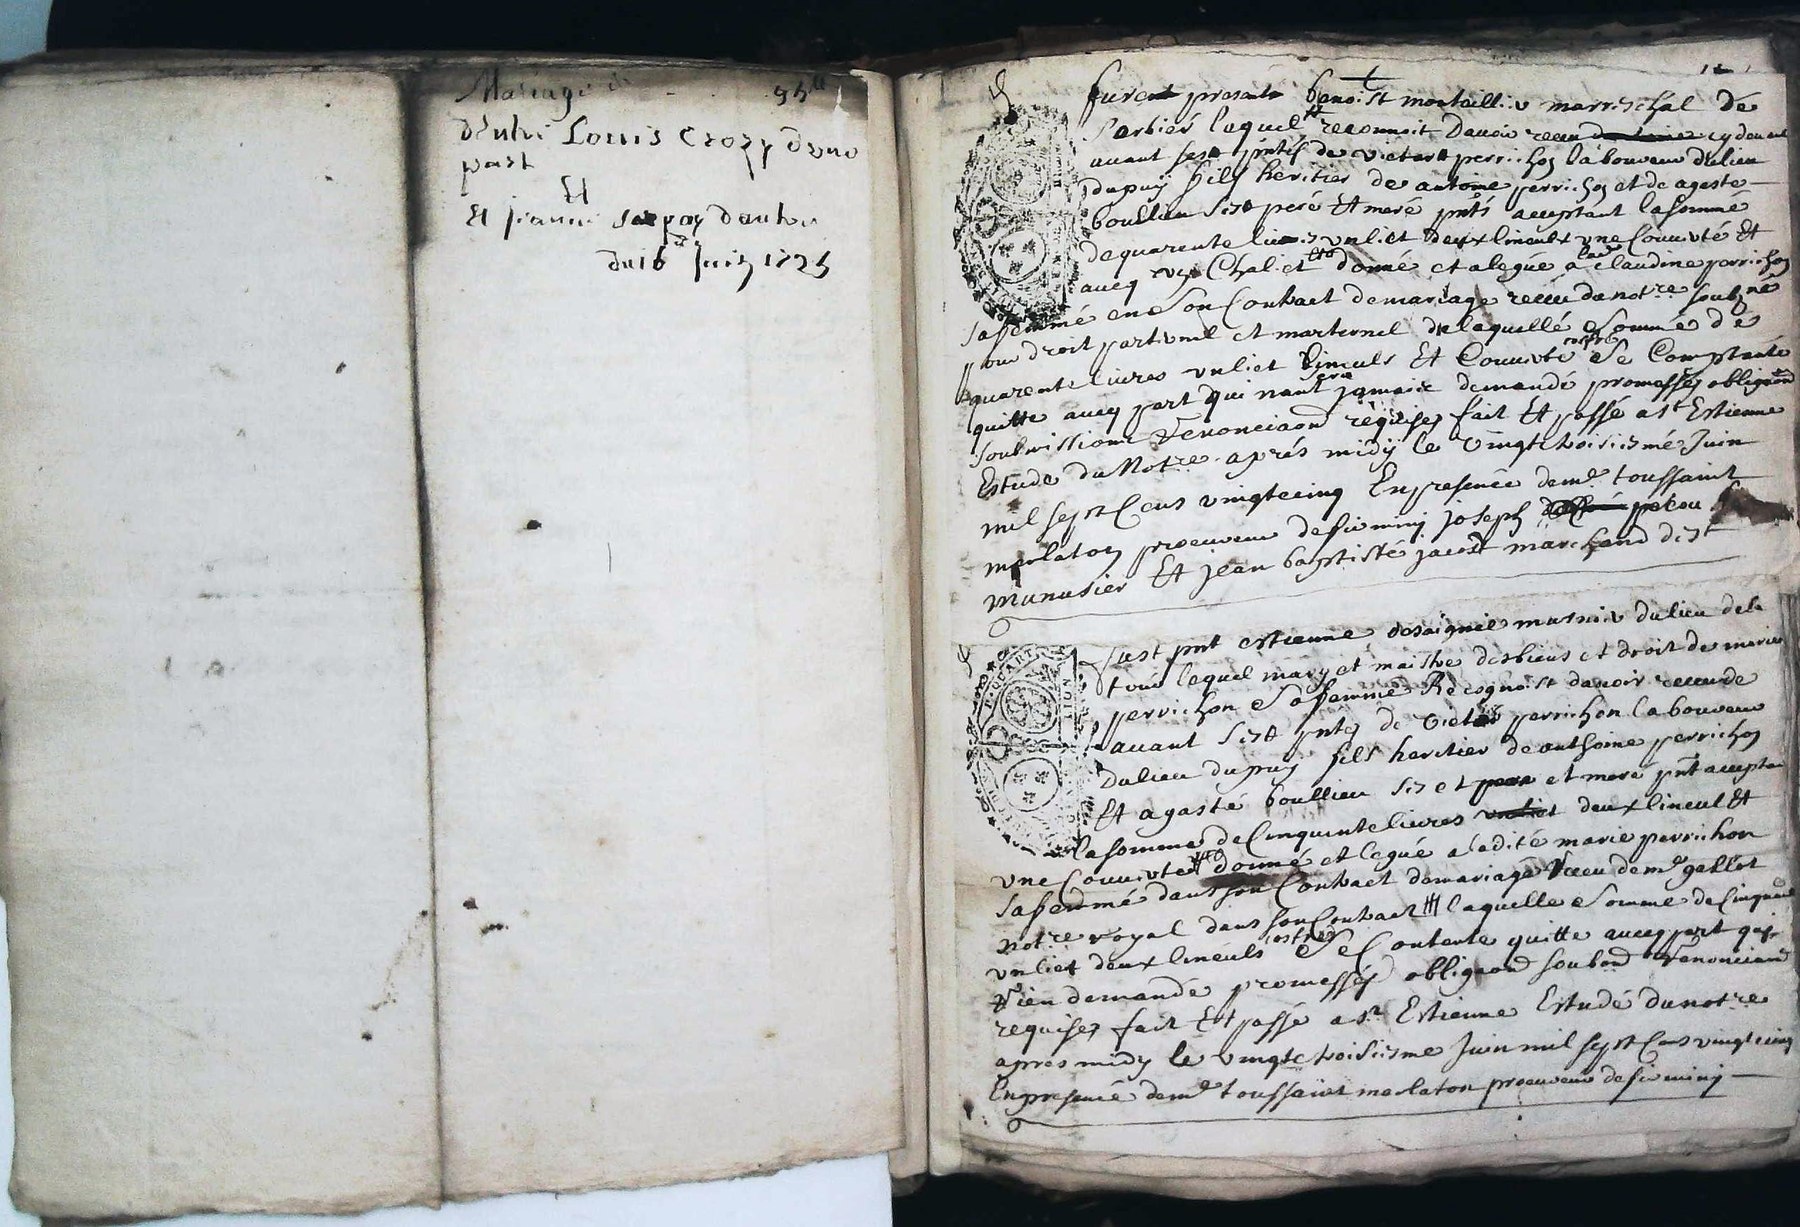 Mariage
d'entre Louis Crozy d'une
part
Et
Et jeanne d'autre
du 16e Juin 1725
furent present benoist montellier marreschal de
lequel reconnoit davoir receu cy devant
avant ses pntes de victor perrichon laboureur du lieu
dupuy fils heritier de antoine perrichon et de agaste
boullieu ses pere et mere pnts acceptant la somme
de quarente livres un lict deux linceulx une couverte et
avecq donné et alegue a claudine perrichon
sa femme en son Contract de mariage receu du notre soubne
pour droit parternel et marternel de laquelle somme de
quarente livres un lict linceuls et Couverte se Comptante
quitte avecq part qui nant jamais demandé promesses obligaon
soubmissions renonciaon requises fait et passé a st Estienne
Estude du Notre aprés midÿ le vingt troisiesme Juin
mil sept Cens vingtcinq En presence de me toussaint
marlaton procureur de firminy joseph
munusier Et jean baptiste jacost marchand dist
sest pnt estienne desaignie du lieu de la
tour lequel mary et maistre desbiens et droit de marie
perrichon sa femme Recognoist davoir receu de
avant ses pntes de victor perrichon laboureur
du lieu dupuy fils heritier de anthoine perrichon
Et agaste boullieu ses et mere pnt acceptan
la somme de Cinquente livres deux linceul Et
une Couverte donné et legué a ladite marie perrichon
sa femme dans son Contract de mariage receu de me gallot
notre royal dans son Contract laquelle somme de Cinquante
un lict deux linceuls se Contente quitte avecq part
rien demande promesses obligaon soubmon renonciaon
requises fait Et passé a st Estienne Estude du notre
apres midy le vingt troisiesme Juin mil sept Cens vingtcinq
En presence de me toussaint marlaton procureur de firminy